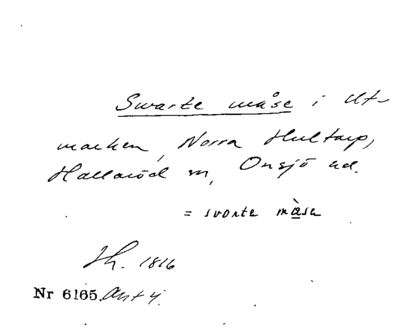 Swarte måse i Ut-
marken, Norra Hultarp,
Hallaröd sn, Onsjö hd.
= svarta måsa
Lh. 1816
Nr 6165. Ant 4.